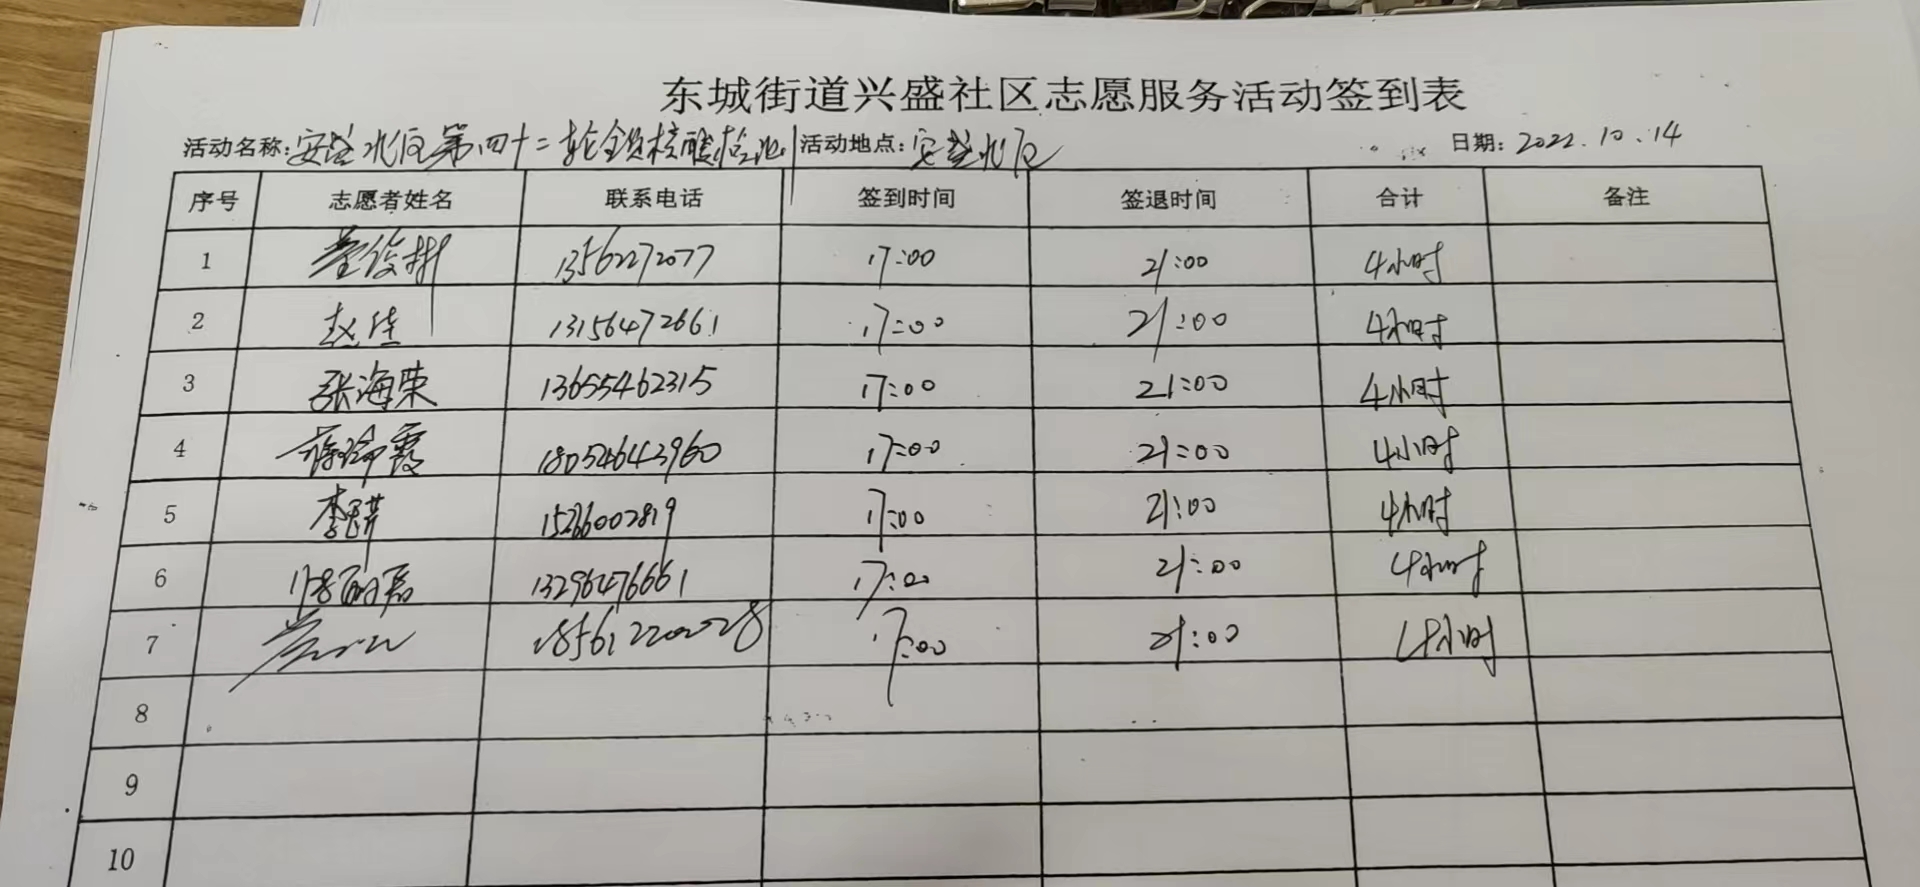 东城街道兴盛社区志愿服务活动签到表
活动名称：安盛北区第四十二轮全员核酸检测 活动地点：安盛北区 日期：2022.10.14
序号 志愿者姓名 联系电话 签到时间 签退时间 合计 备注
1 13562272077 17:00 21:00 4小时
2 赵佳 13156472661 17:00 21:00 4小时
3 张海荣 13655462315 17:00 21:00 4小时
4 18054643960 17:00 21:00 4小时
5 15266002819 17:00 21:00 4小时
6 13296476661 17:00 21:00 4小时
7 17:00 21:00 4小时
8
9
10